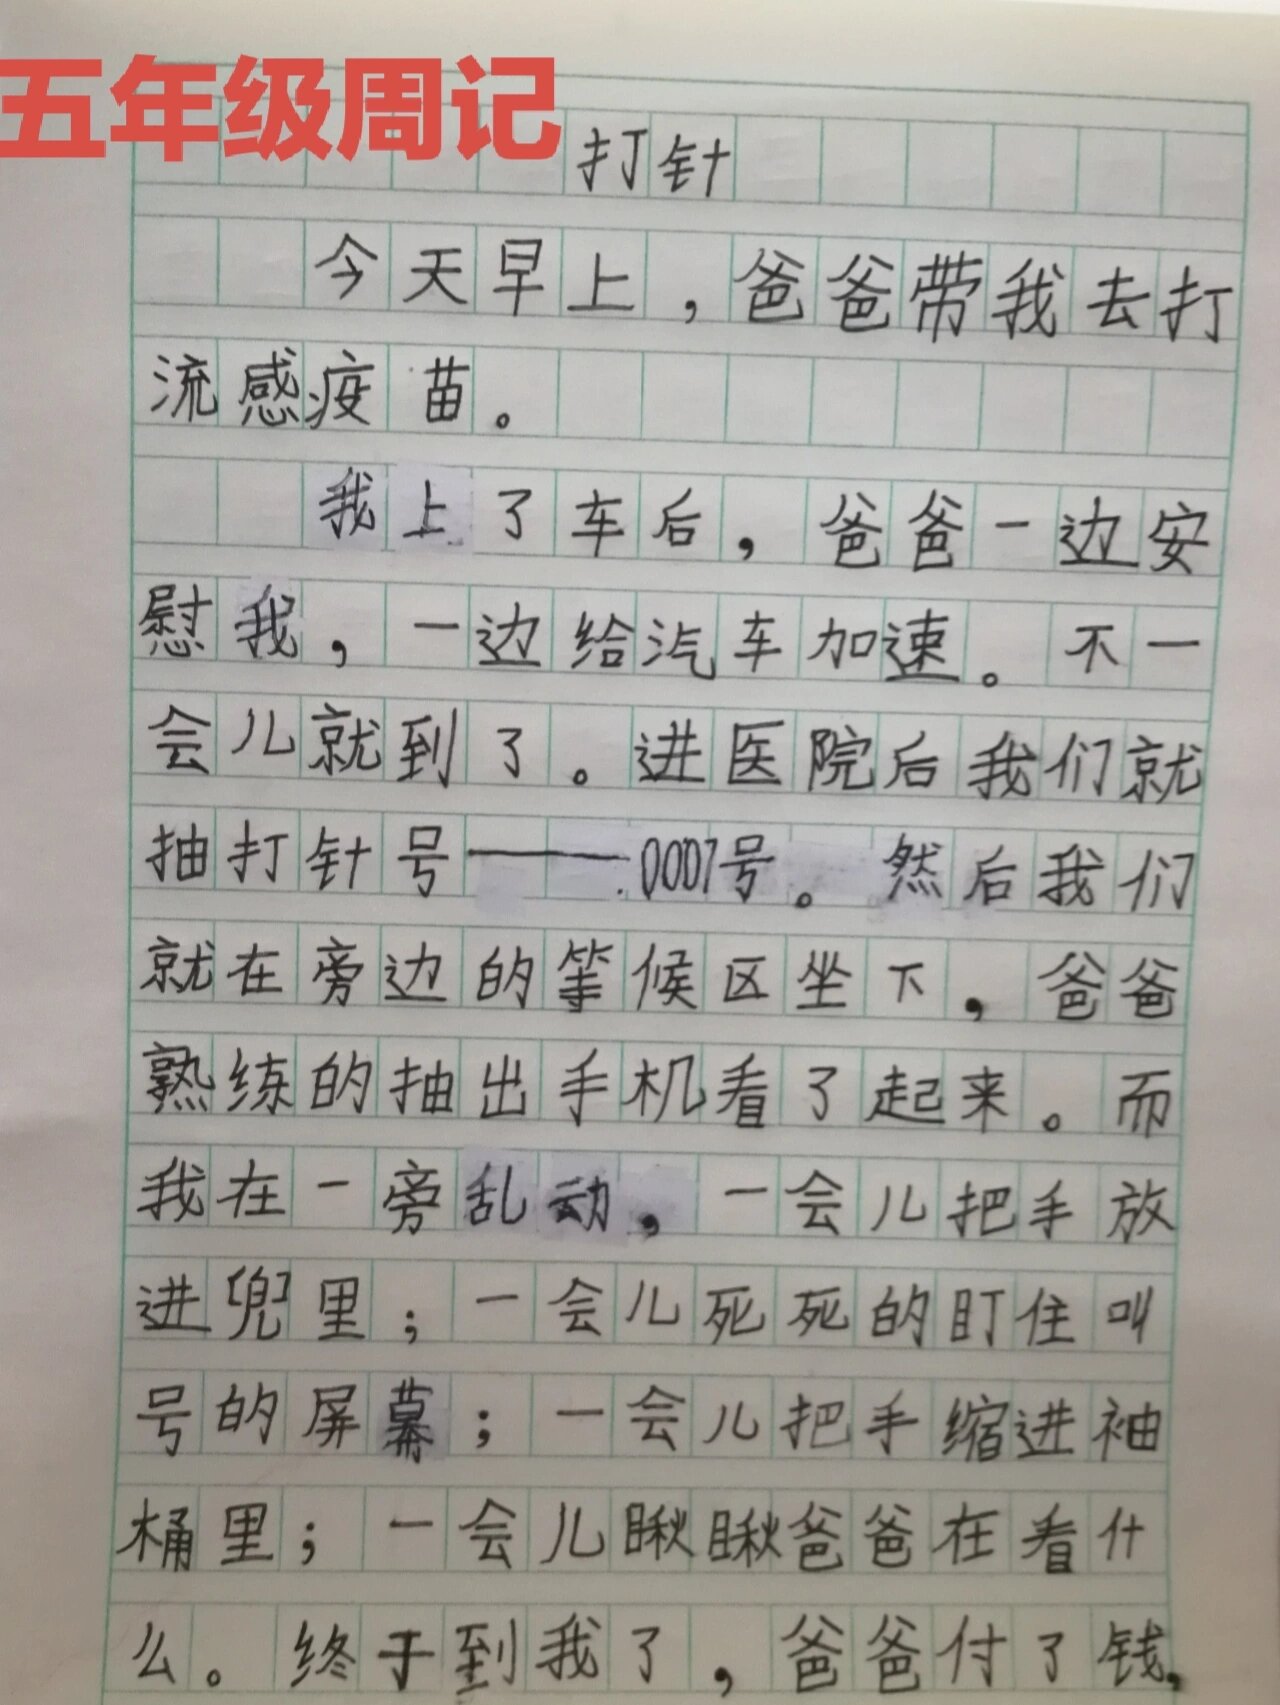 五年级周记
打针
今天早上，爸爸带我去打
流感疫苗。
我上了车后，爸爸一边安
慰我，一边给汽车加速。不一
会儿就到了。进医院后我们就
抽打针号——0007号。然后我们
就在旁边的等候区坐下，爸爸
熟练的抽出手机看了起来。而
我在一旁乱动，一会儿把手放
进兜里；一会儿死死的盯住叫
号的屏幕；一会儿把手缩进袖
桶里；一会儿瞅瞅爸爸在看什
么。终于到我了，爸爸付了钱，